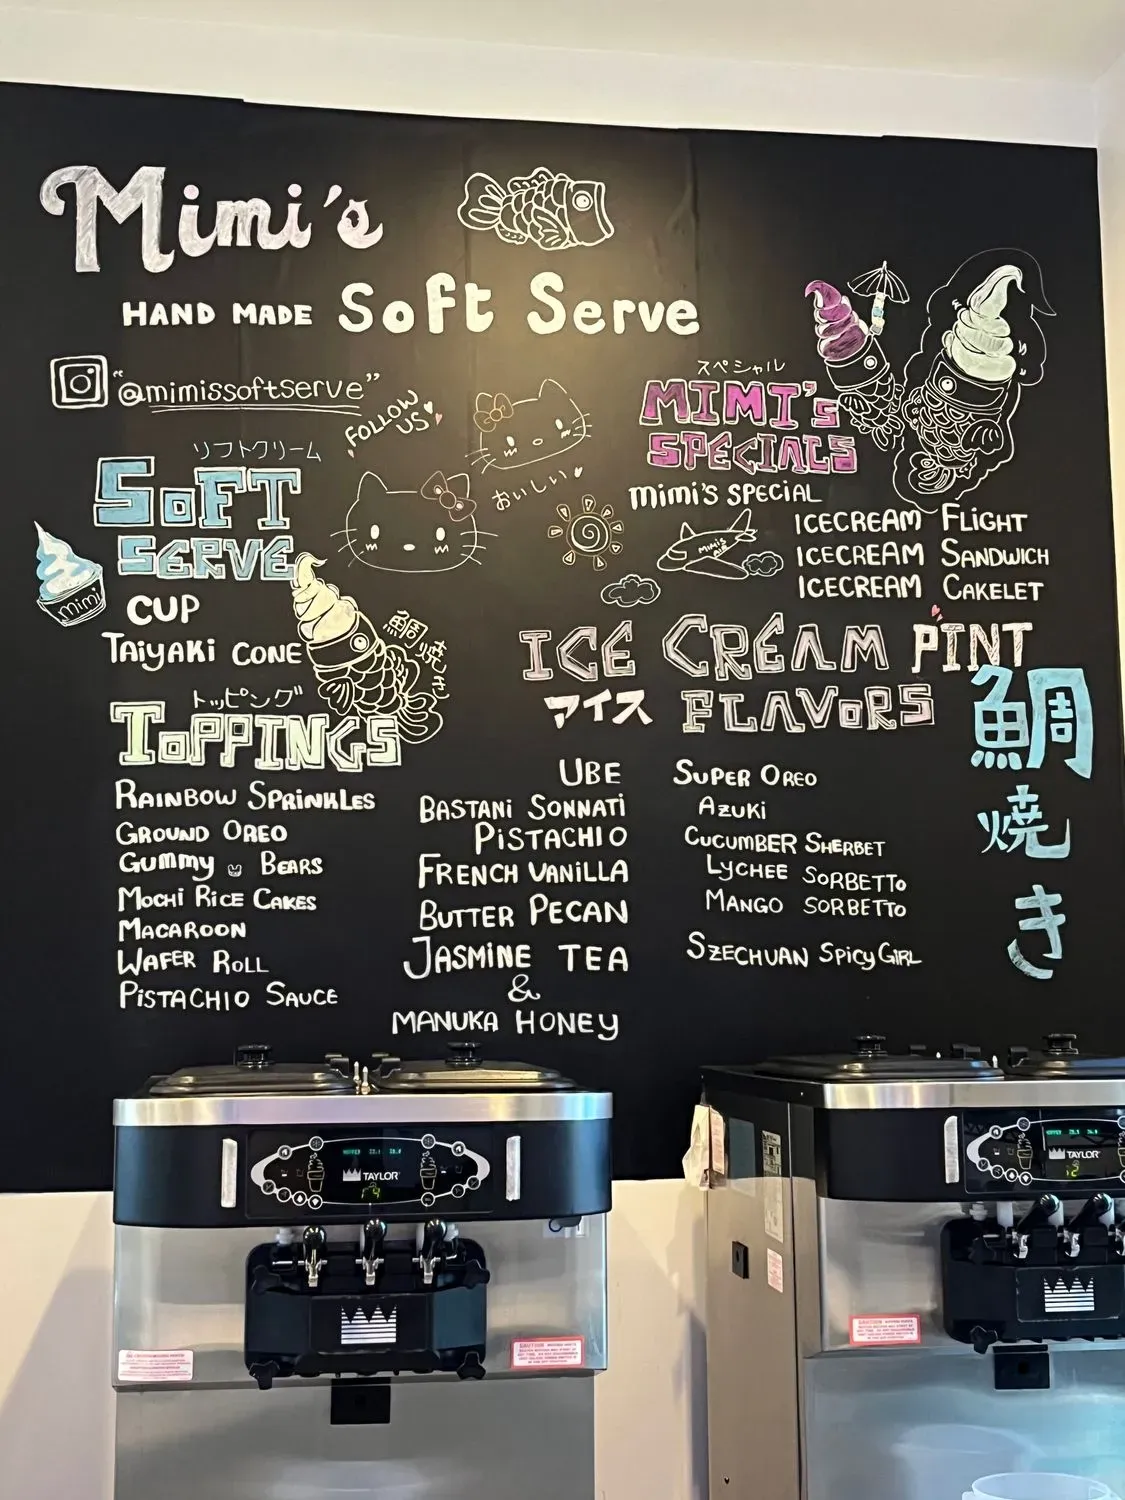 Mimi's
HAND MADE Soft Serve
"@mimissoftserve"
FOLLOW
US
おいしい
リフトクリーム
SOFT
SERVE
mimi
CUP
TAIYAKI CONE
鯛焼き
トッピング
TOPPINGS
RAINBOW SPRINKLES
GROUND OREO
GUMMY BEARS
MOCHI RICE CAKES
MACAROON
WAFER ROLL
PISTACHIO SAUCE
スペシャル
MIMI'S
SPECIALS
mimi's SPECIAL
ICECREAM FLIGHT
ICECREAM SANDWICH
ICECREAM CAKELET
MIMI'S
AIR
ICE CREAM PINT
アイス FLAVORS
UBE
BASTANI SONNATI
PISTACHIO
FRENCH VANILLA
BUTTER PECAN
JASMINE TEA
&
MANUKA HONEY
SUPER OREO
AZUKI
CUCUMBER SHERBET
LYCHEE SORBETTO
MANGO SORBETTO
SZECHUAN SPICY GIRL
鯛
焼
き
TAYLOR
TAYLOR
CAUTION
CAUTION